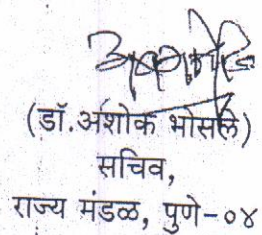 (डॉ. अशोक भोसले)
सचिव,
राज्य मंडळ, पुणे-०४